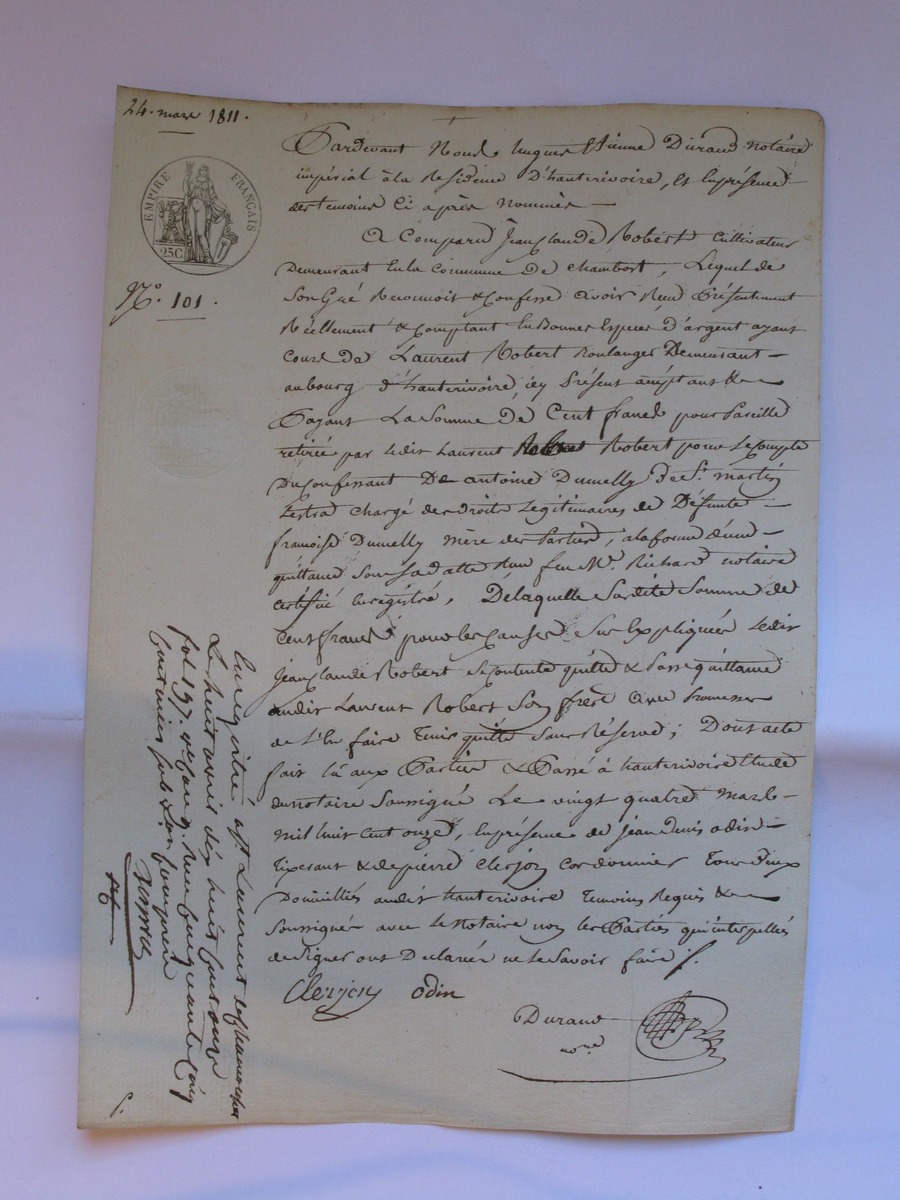 24. mars 1811.
EMPIRE FRANÇAIS
25C
N.º 101.
Pardevant Nous hugues Etienne Durand notaire
impérial à la Residence D'hauterivoire, et Enprésence
des temoins Ci après nommés —
A Comparu Jean Claude Robert Cultivateur
Demeurant En la Commune De chambort, Lequel de
Son Gré Reconnoit & Confesse avoir Reçu Présentement
Réellement & Comptant En Bonnes Especes d'argent ayant
Cours De Laurent Robert Boulanger Demeurant —
au bourg d'hauterivoire, icy Présent acceptant & —
Payant La Somme De Cent francs pour Pareille
retirée par Ledit Laurent Robert pour Le Compte
Du Confessant De antoine Dumelly De St. martin
Lestra chargé des droits Légitimaires de Défunte —
francoise Dumelly mère des Parties, a la forme d'une
quittance Sous Sa datte Reçue feu Me. Richard notaire
certifié Enrégistré, De laquelle Susdite Somme de
Cent francs pour les Causes Sus Expliquées Ledit
Jean Claude Robert Se Contente quitte & Passe quittance
audit Laurent Robert Son frère avec Promesse
de L'En faire Tenir quitte Sans Réserve; Dont acte
fait Lû aux Parties & Passé à hauterivoire Etude
du notaire Soussigné Le vingt quatre mars —
mil huit Cent onze, En présence de Jean Denis odin —
Tixerant & de pierre Clerjon Cordonnier Tous Deux
Domiciliés audit hauterivoire Temoins Requis & —
Soussignés avec Le Notaire non les Parties qui interpellées
de Signer ont Déclarées ne Le Savoir faire
Clerjon odin
Durand
nore
Enregistré à St Laurent de Chamousset
Le huit avril dix huit cent onze
fol. 97. Reçu cinquante cinq
centimes Sub.on Comprise